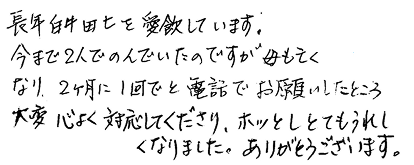 長年白井田七を愛飲しています。
今まで2人でのんでいたのですが母も亡く
なり、2ヶ月に1回でと電話でお願いしたところ
大変心よく対応してくださり、ホッとしとてもうれし
くなりました。ありがとうございます。